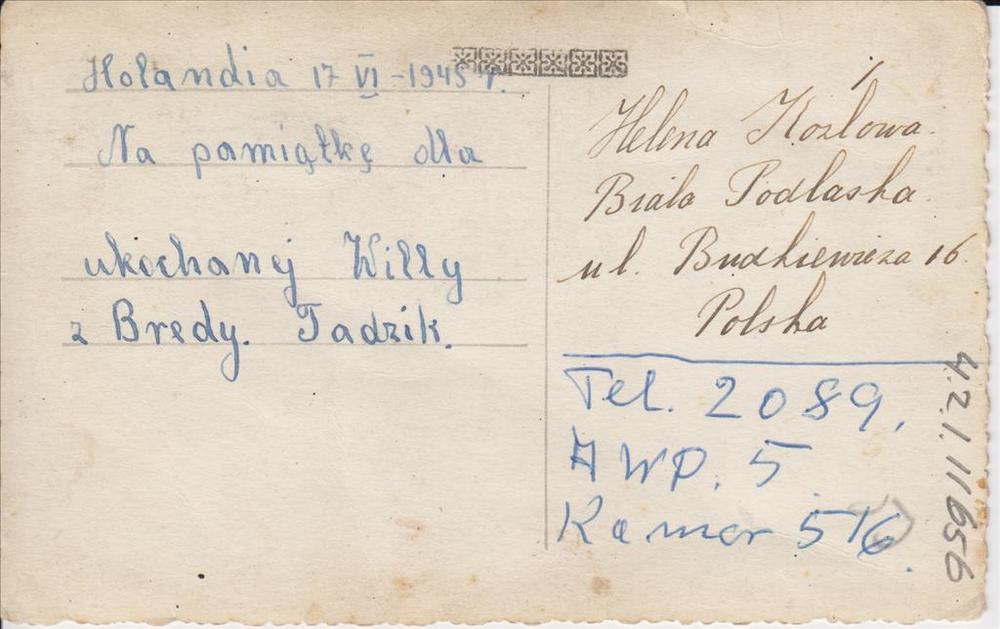 Holandia 17 VI - 1945 r.
Na pamiątkę dla
ukochanej Willy
z Bredy. Tadzik.
Helena Kozlowa.
Biala Podlaska.
ul. Budkiewicza 16.
Polska
Tel. 2089,
AWP. 5
Kamer 516.
42.1.11656